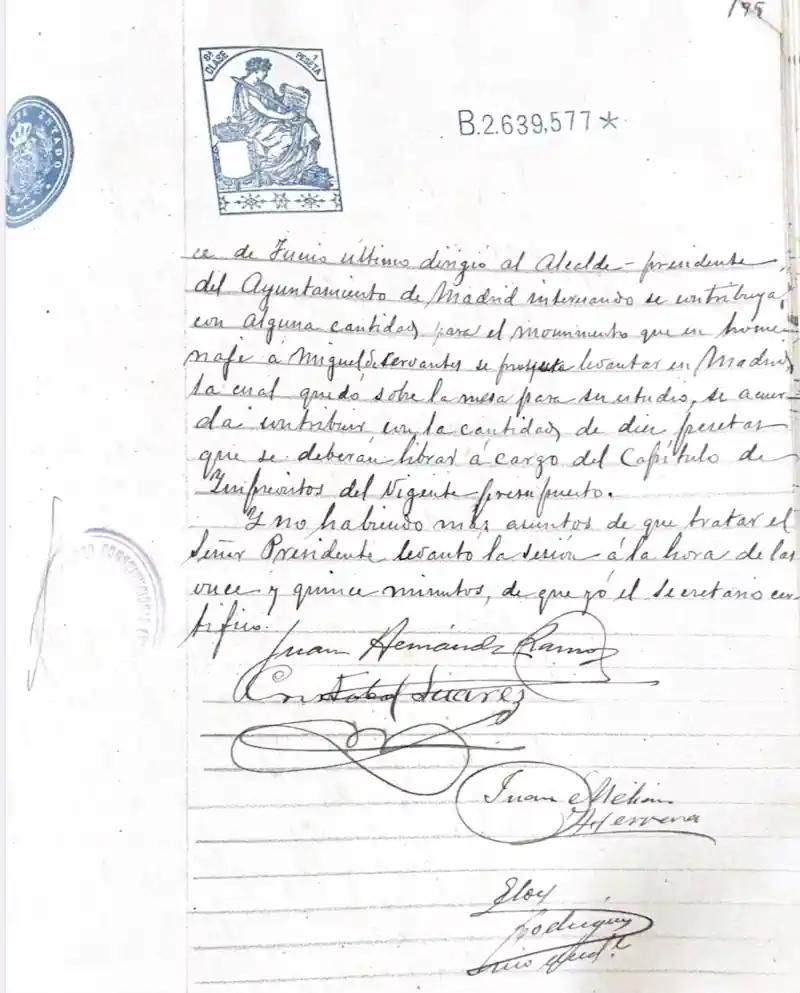 195
8ª CLASE
1 PESETA
B.2.639,577 *
ESTADO
ce de Junio último dirigió al Alcalde-presidente
del Ayuntamiento de Madrid interesando se contribuya
con alguna cantidad para el monumento que en home-
naje á Miguel de Cervantes se proyecta levantar en Madrid,
la cual quedó sobre la mesa para su estudio, se acuer-
da contribuir con la cantidad de diez pesetas
que se deberán librar á cargo del Capítulo de
Imprevistos del Vigente presupuesto.
Y no habiendo más asuntos de que tratar el
Señor Presidente levanto la sesión á la hora de las
once y quince minutos, de que yó el Secretario cer-
tifico.
Juan Hernández Ramos
Cristobal Suarez
Juan Melian
Herrera
Eloy
Rodriguez